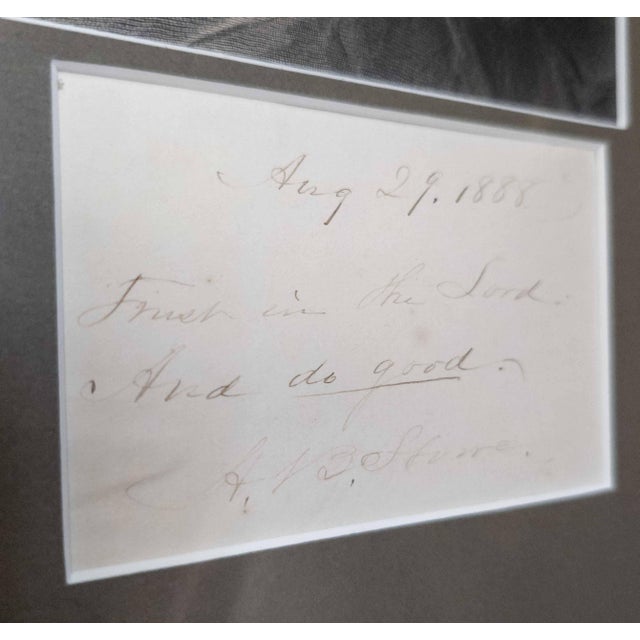 Aug 29. 1888
Trust in the Lord.
And do good.
H. B. Stowe.